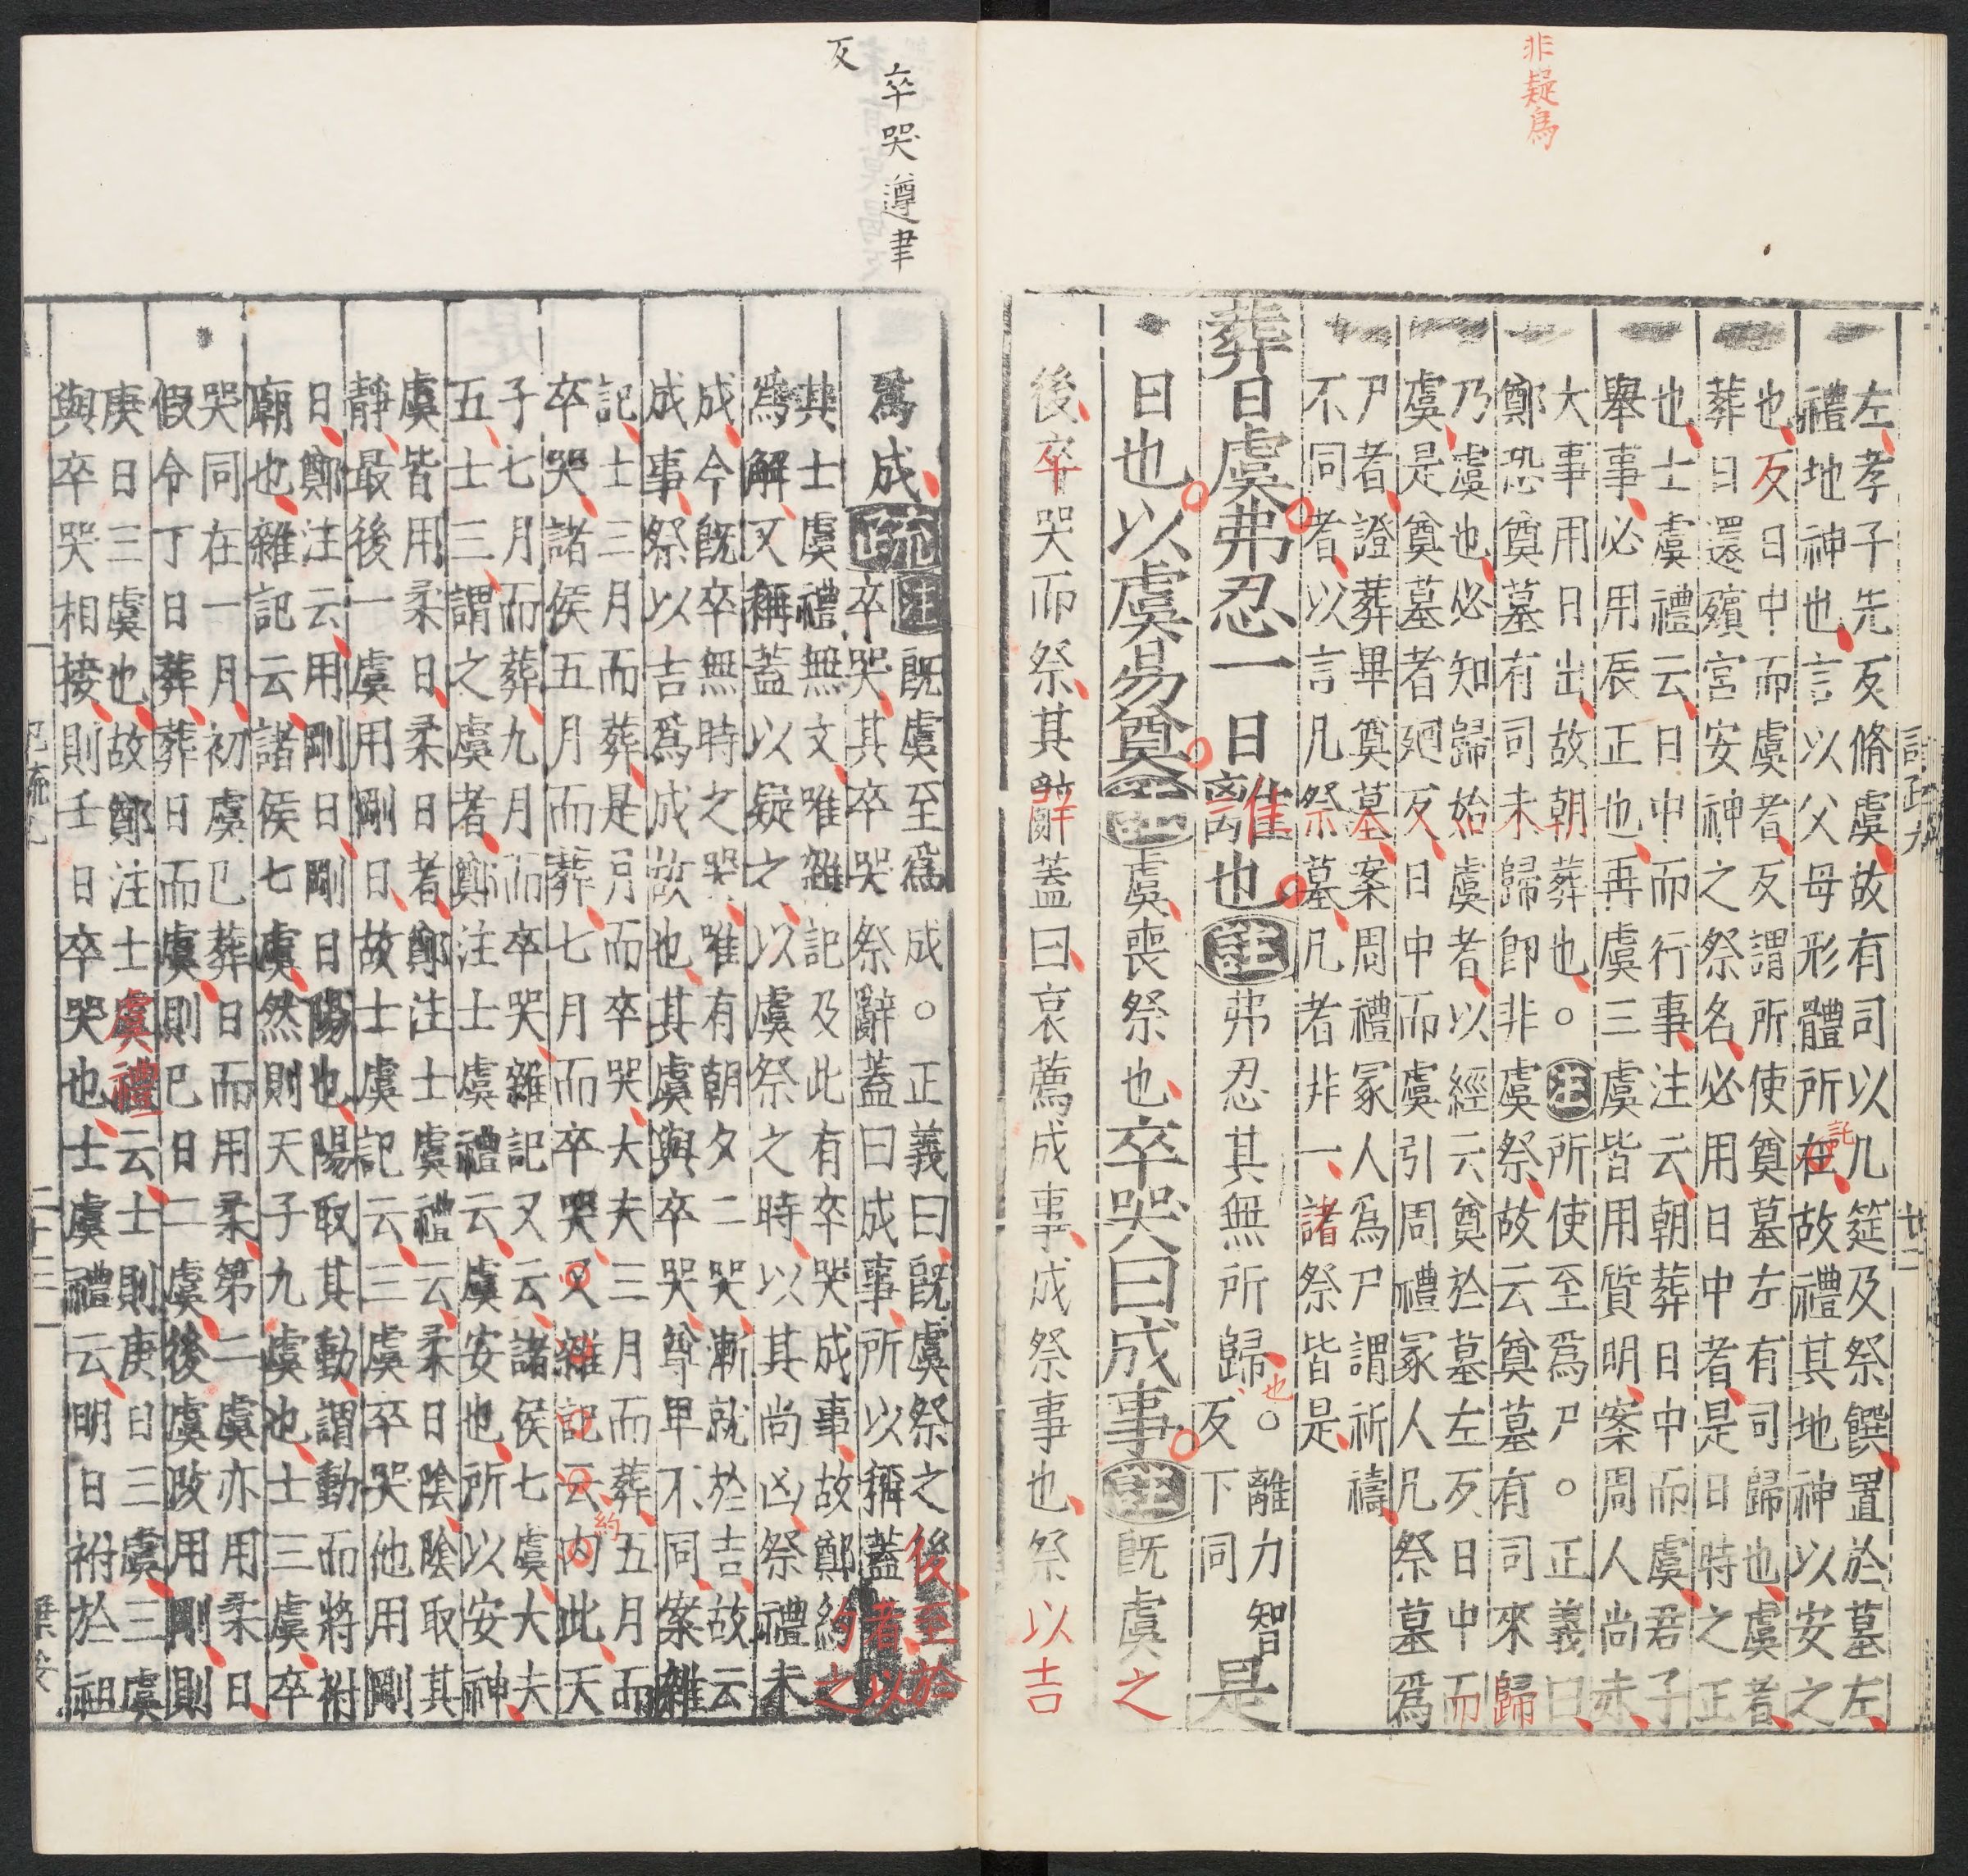 非疑爲
左孝子先反脩虞故有司以几筵及祭饌置於墓左
禮地神也言以父母形體所在故禮其地神以安之
託
也反日中而虞者反謂所使奠墓左有司歸也虞者
葬日還殯宮安神之祭名必用日中者是日時之正
也士虞禮云日中而行事注云朝葬日中而虞君子
舉事必用辰正也再虞三虞皆用質明案周人尚赤
大事用日出故朝葬也。注所使至爲尸。正義曰
鄭恐奠墓有司未歸即非虞祭故云奠墓有司來歸
乃虞也必知歸始虞者以經云奠於墓左反日中而
虞是奠墓者廻反日中而虞引周禮冢人凡祭墓爲
尸者證葬畢奠墓案周禮冢人爲尸謂祈禱
不同者以言凡祭墓凡者非一諸祭皆是
葬日虞弗忍一日離也註弗忍其無所歸也。離力智反下同是
日也以虞易奠註虞喪祭也卒哭曰成事註既虞之
後卒哭而祭其辭蓋曰哀薦成事成祭事也祭以吉
卒哭遵聿
反
爲成疏注既虞至爲成。正義曰既虞祭之後至於
卒哭其卒哭祭辭蓋曰成事所以稱蓋者以
其士虞禮無文唯雜記及此有卒哭成事故鄭約之
爲解又稱蓋以疑之以虞祭之時以其尚凶祭禮未
成今既卒無時之哭唯有朝夕二哭漸就於吉故云
成事祭以吉爲成故也其虞與卒哭尊卑不同案雜
記士三月而葬是月而卒哭大夫三月而葬五月而
卒哭諸侯五月而葬七月而卒哭又雜記云內此天
約
子七月而葬九月而卒哭雜記又云諸侯七虞大夫
五士三謂之虞者鄭注士虞禮云虞安也所以安神
虞皆用柔日柔日者鄭注士虞禮云柔日陰陰取其
靜最後一虞用剛日故士虞記云三虞卒哭他用剛
日鄭注云用剛日剛日陽也陽取其動謂動而將祔
廟也雜記云諸侯七虞然則天子九虞也士三虞卒
哭同在一月初虞已葬日而用柔第二虞亦用柔日
假令丁日葬葬日而虞則巳日二虞後虞改用剛則
庚日三虞也故鄭注士虞禮云士則庚日三虞三虞
與卒哭相接則壬日卒哭也士虞禮云明日祔於祖